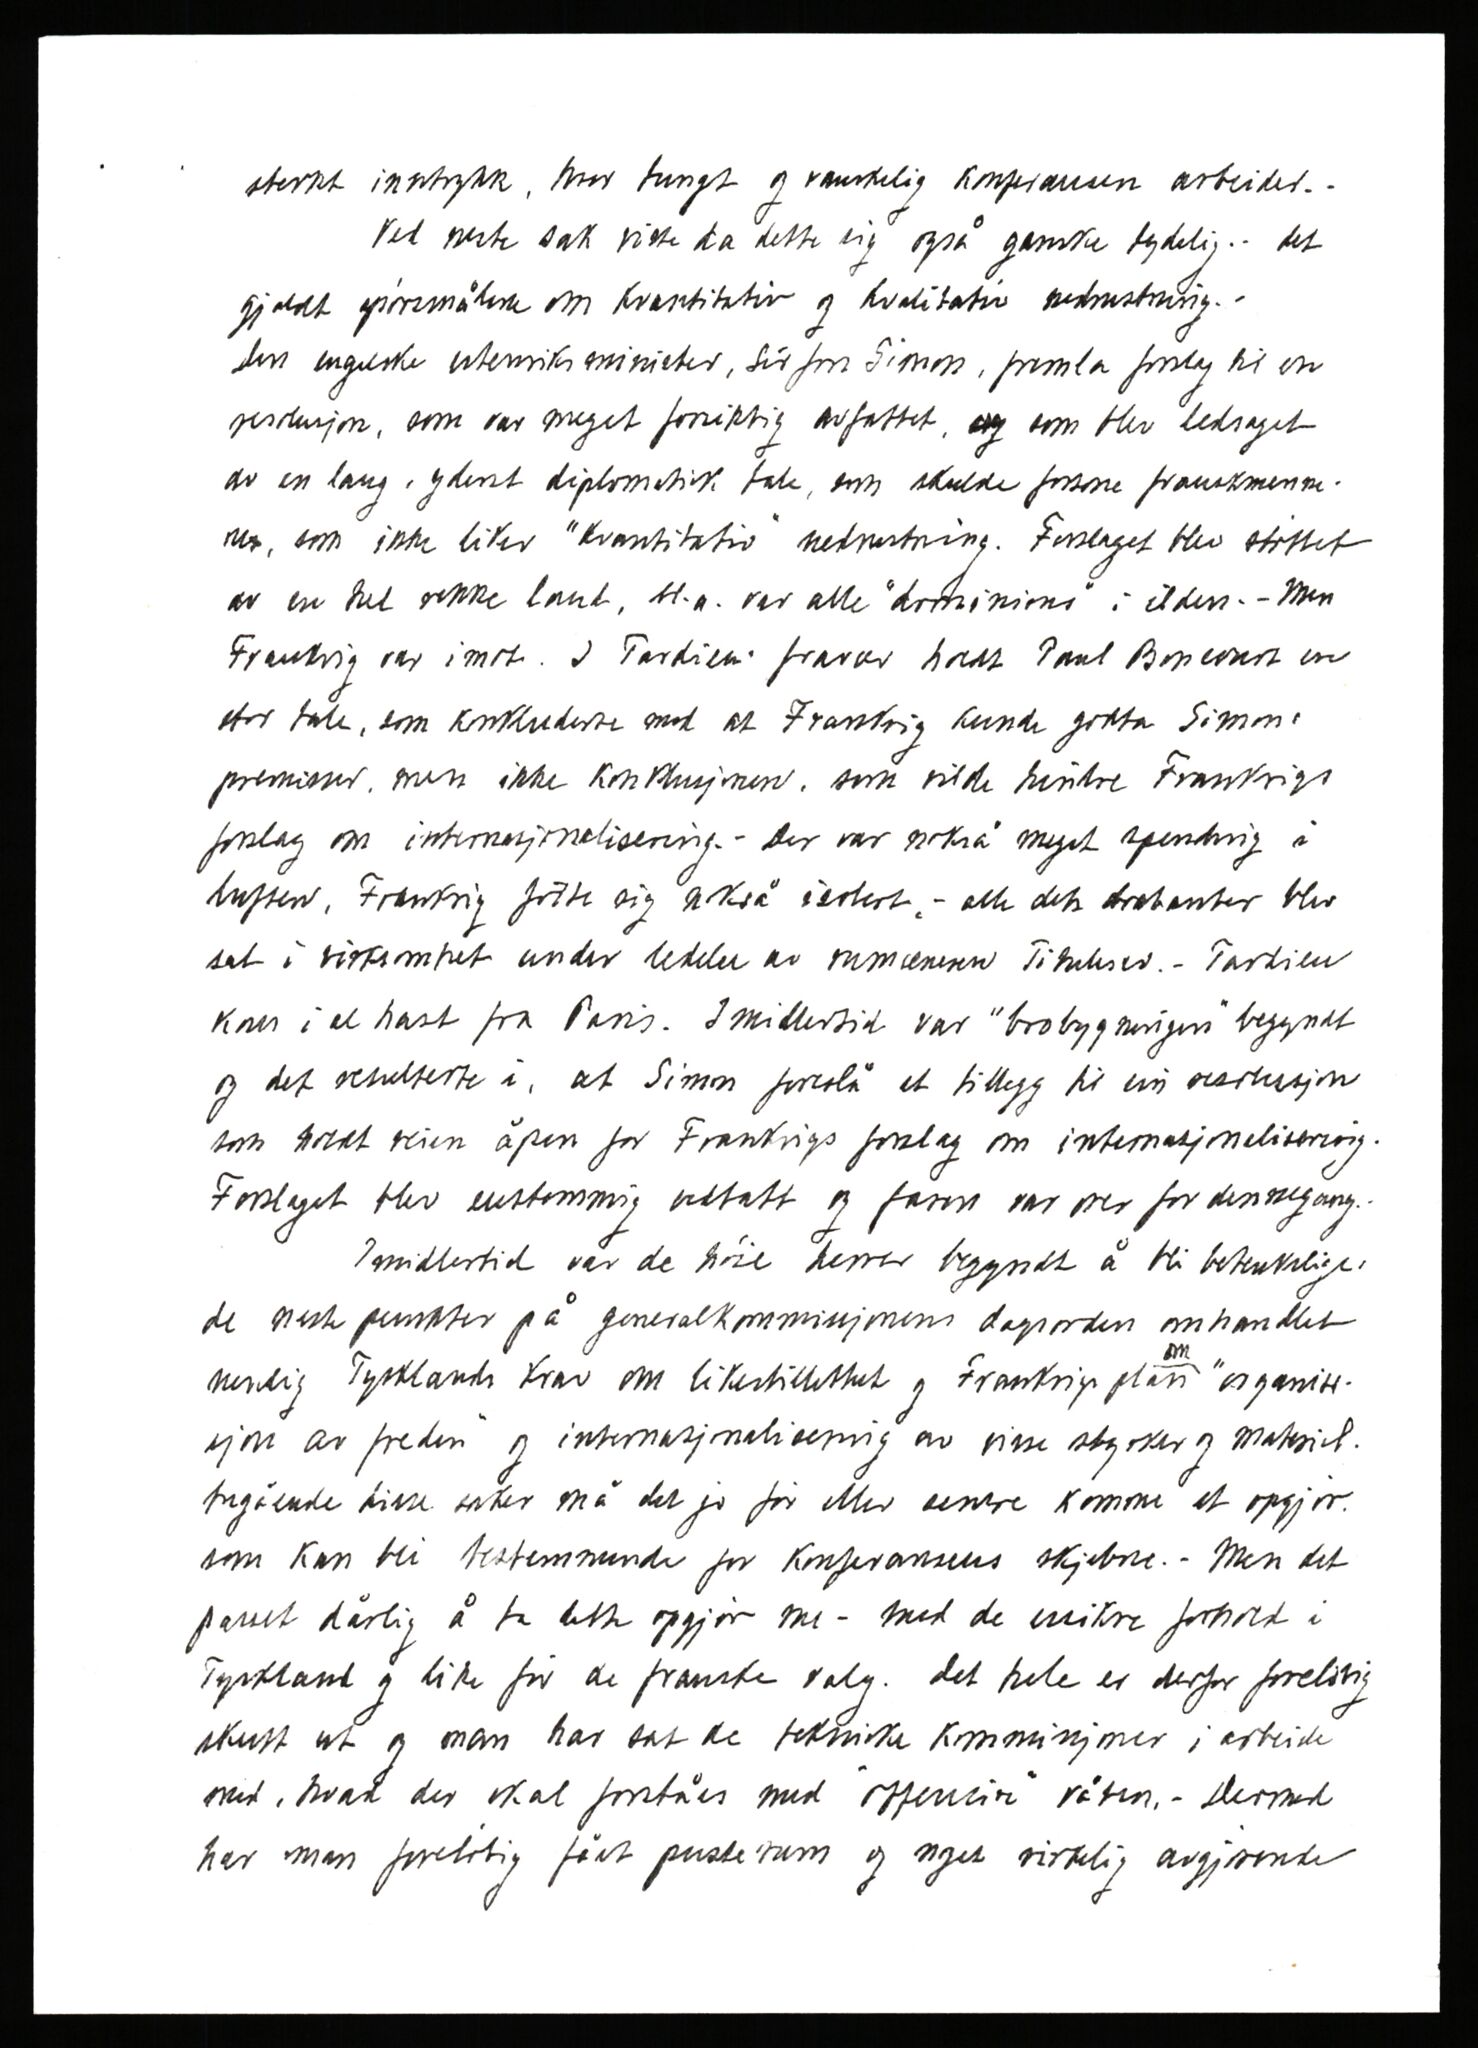 sterkt inntrykk, hvor tungt og vanskelig konferansen arbeider.-
Ved neste sak viste da dette sig også ganske tydelig.- det
gjaldt spörsmålene om kvantitativ og kvalitativ nedrustning.-
Den engelske utenriksminister, Sir John Simon, fremla forslag til en
resolusjon, som var meget forsiktig avfattet, og som blev ledsaget
av en lang, yderst diplomatisk tale, som skulde forsone franskmenne-
ne, som ikke liker "kvantitativ" nedrustning. Forslaget blev støttet
av en hel rekke land, bl.a. var alle "dominions" i ilden.- Men
Frankrig var imot. I Tardieus fravær holdt Paul Boncourt en
stor tale, som konkluderte med at Frankrig kunde godta Simons
premisser, men ikke konklusjonen, som vilde hindre Frankrigs
forslag om internasjonalisering.- Der var nokså meget spenning i
luften, Frankrig fölte sig nokså isolert,- alle dets drabanter blev
sat i virksomhet under ledelse av rumæneren Titulescu.- Tardieu
kom i al hast fra Paris. Imidlertid var "brobygningen" begyndt
og det resulterte i, at Simon foreslå et tillegg til sin resolusjon
som holdt veien åpen for Frankrigs forslag om internasjonalisering.
Forslaget blev enstemmig vedtatt og faren var over for dennegang.-
Imidlertid var de höie herrer begyndt å bli betenkelige,
de neste punkter på generalkommisjonens dagsorden omhandlet
nemlig Tysklands krav om likestillethet og Frankrigs plan om "organisa-
sjon av freden" og internasjonalisering av visse styrker og materiel.
Angående disse saker må det jo för eller senere komme et opgjör,
som kan bli bestemmende for konferansens skjebne.- Men det
passet dårlig å ta dette opgjör nu - med de usikre forhold i
Tyskland og like för de franske valg. Det hele er derfor forelöbig
skutt ut og man har sat de tekniske kommisjoner i arbeide
med, hvad der skal forståes med "offensive" våben.- Dermed
har man forelöbig fået pusterum og noget virkelig avgjörende